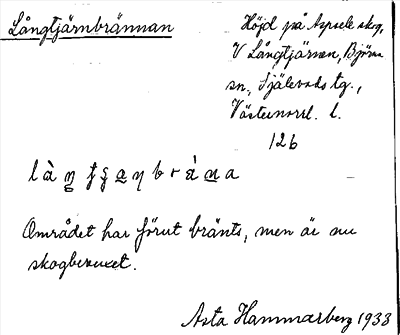 Långtjärnbrännan
Höjd på Aspsele skog,
V Långtjärnen, Björna
sn, Själevads tg.,
Västernorrl. l.
126
Området har förut bränts, men är nu
skogbevuxet.
Asta Hammarberg 1933